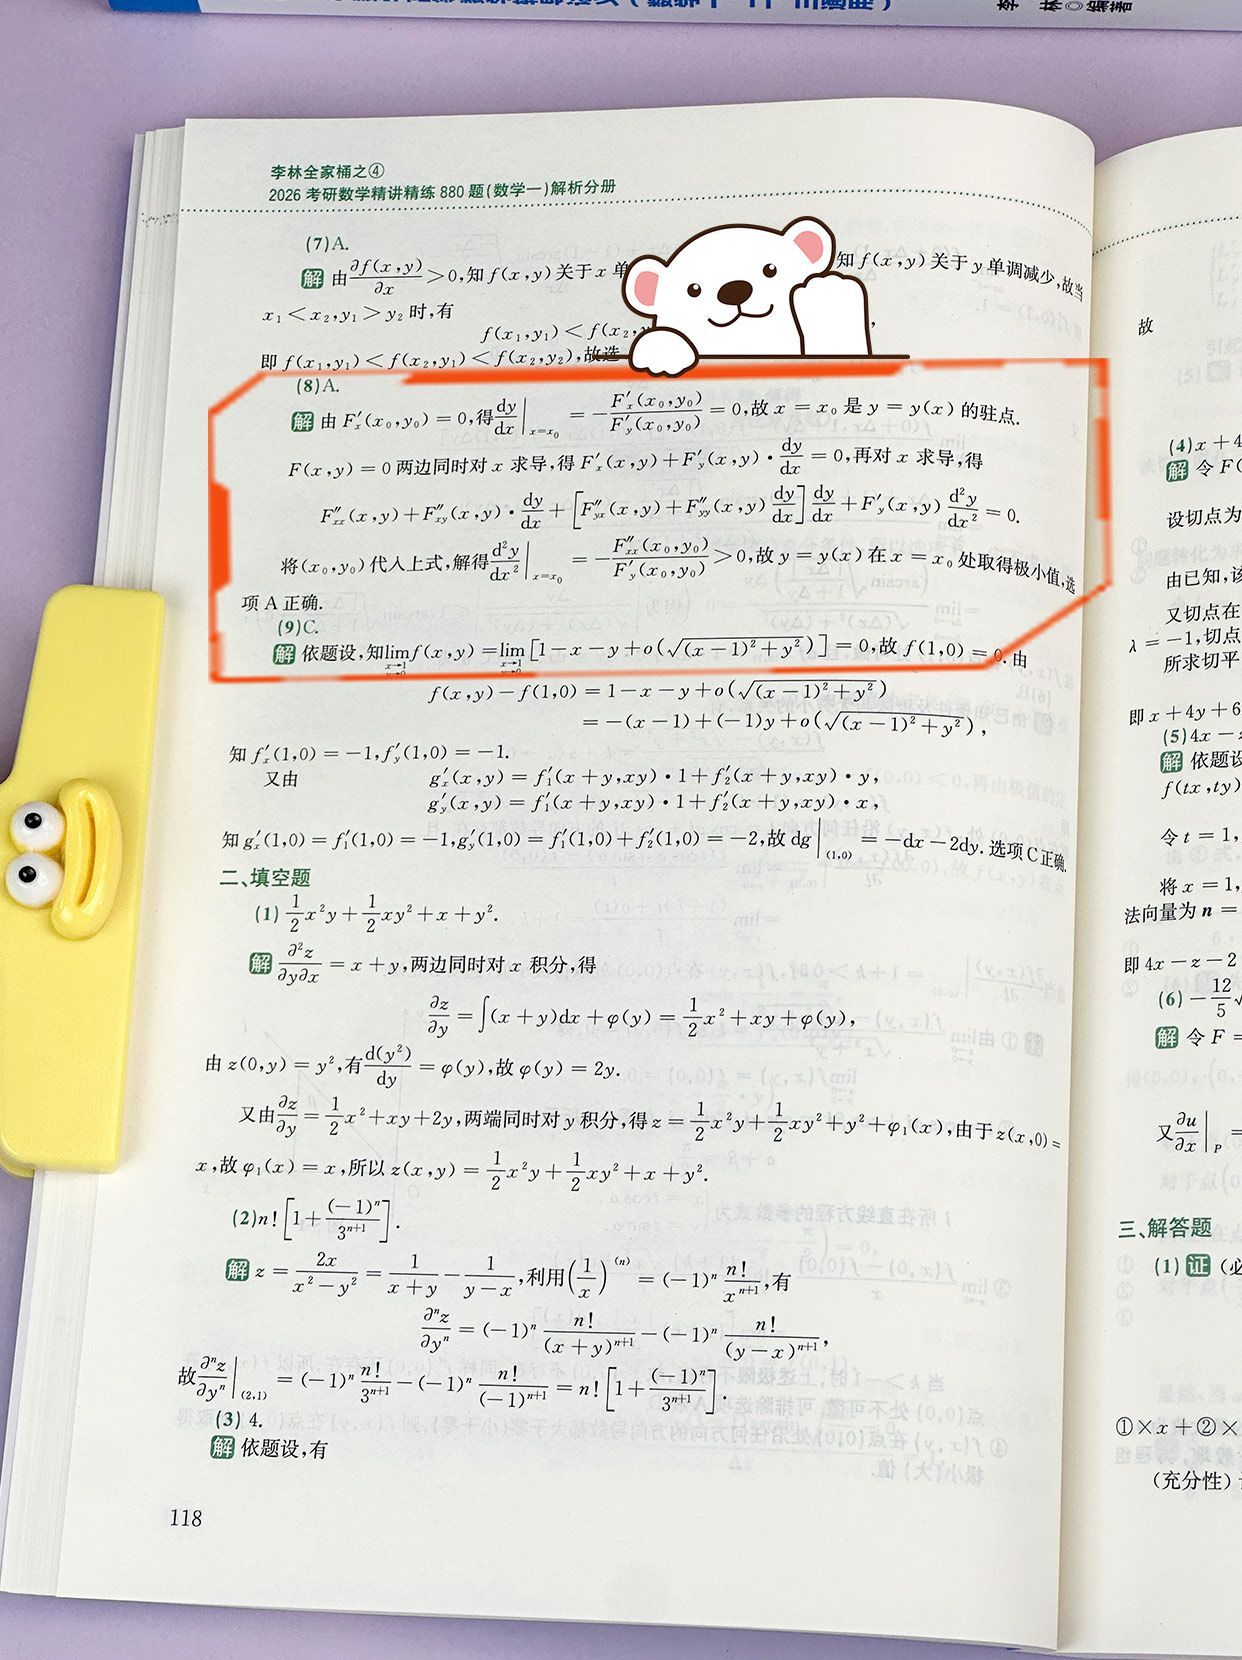 李林全家桶之④
2026 考研数学精讲精练 880 题(数学一)解析分册
(7)A.
解 由∂f(x,y)/∂x>0,知 f(x,y)关于 x 单 知 f(x,y)关于 y 单调减少,故当
x₁<x₂,y₁>y₂ 时,有
f(x₁,y₁)<f(x₂,y ,
即 f(x₁,y₁)<f(x₂,y₁)<f(x₂,y₂),故选
(8)A.
解 由 F′ₓ(x₀,y₀)=0,得dy/dx|ₓ₌ₓ₀ =-F′ₓ(x₀,y₀)/F′ᵧ(x₀,y₀)=0,故 x=x₀ 是 y=y(x)的驻点.
F(x,y)=0 两边同时对 x 求导,得 F′ₓ(x,y)+F′ᵧ(x,y)·dy/dx=0,再对 x 求导,得
F″ₓₓ(x,y)+F″ₓᵧ(x,y)·dy/dx+[F″ᵧₓ(x,y)+F″ᵧᵧ(x,y)dy/dx]dy/dx+F′ᵧ(x,y)d²y/dx²=0.
将(x₀,y₀)代入上式,解得d²y/dx²|ₓ₌ₓ₀ =-F″ₓₓ(x₀,y₀)/F′ᵧ(x₀,y₀)>0,故 y=y(x)在 x=x₀ 处取得极小值,选
项 A 正确.
(9)C.
解 依题设,知lim(x→1,y→0)f(x,y)=lim(x→1,y→0)[1-x-y+o(√((x-1)²+y²))]=0,故 f(1,0)=0.由
f(x,y)-f(1,0)=1-x-y+o(√((x-1)²+y²))
=-(x-1)+(-1)y+o(√((x-1)²+y²)),
知 f′ₓ(1,0)=-1,f′ᵧ(1,0)=-1.
又由 g′ₓ(x,y)=f′₁(x+y,xy)·1+f′₂(x+y,xy)·y,
g′ᵧ(x,y)=f′₁(x+y,xy)·1+f′₂(x+y,xy)·x,
知 g′ₓ(1,0)=f′₁(1,0)=-1,g′ᵧ(1,0)=f′₁(1,0)+f′₂(1,0)=-2,故 dg|(1,0) =-dx-2dy.选项 C 正确.
二、填空题
(1) 1/2x²y+1/2xy²+x+y².
解 ∂²z/∂y∂x=x+y,两边同时对 x 积分,得
∂z/∂y=∫(x+y)dx+φ(y)=1/2x²+xy+φ(y),
由 z(0,y)=y²,有d(y²)/dy=φ(y),故 φ(y)=2y.
又由∂z/∂y=1/2x²+xy+2y,两端同时对 y 积分,得 z=1/2x²y+1/2xy²+y²+φ₁(x),由于 z(x,0)=
x,故 φ₁(x)=x,所以 z(x,y)=1/2x²y+1/2xy²+x+y².
(2)n![1+(-1)ⁿ/3ⁿ⁺¹].
解 z=2x/(x²-y²)=1/(x+y)-1/(y-x),利用(1/x)⁽ⁿ⁾=(-1)ⁿ n!/xⁿ⁺¹,有
∂ⁿz/∂yⁿ=(-1)ⁿ n!/(x+y)ⁿ⁺¹-(-1)ⁿ n!/(y-x)ⁿ⁺¹,
故∂ⁿz/∂yⁿ|(2,1) =(-1)ⁿ n!/3ⁿ⁺¹-(-1)ⁿ n!/(-1)ⁿ⁺¹=n![1+(-1)ⁿ/3ⁿ⁺¹].
(3) 4.
解 依题设,有
118
故
(4)x+4
解 令 F(
设切点为
由已知,该
又切点在
λ=-1,切点
所求切平
即 x+4y+6
(5)4x-
解 依题设
f(tx,ty)
令 t=1,
将 x=1,
法向量为 n=
即 4x-z-2
(6)-12/5
解 令 F=
又∂u/∂x|P =
三、解答题
(1) 证 (必
①×x+②×
(充分性)